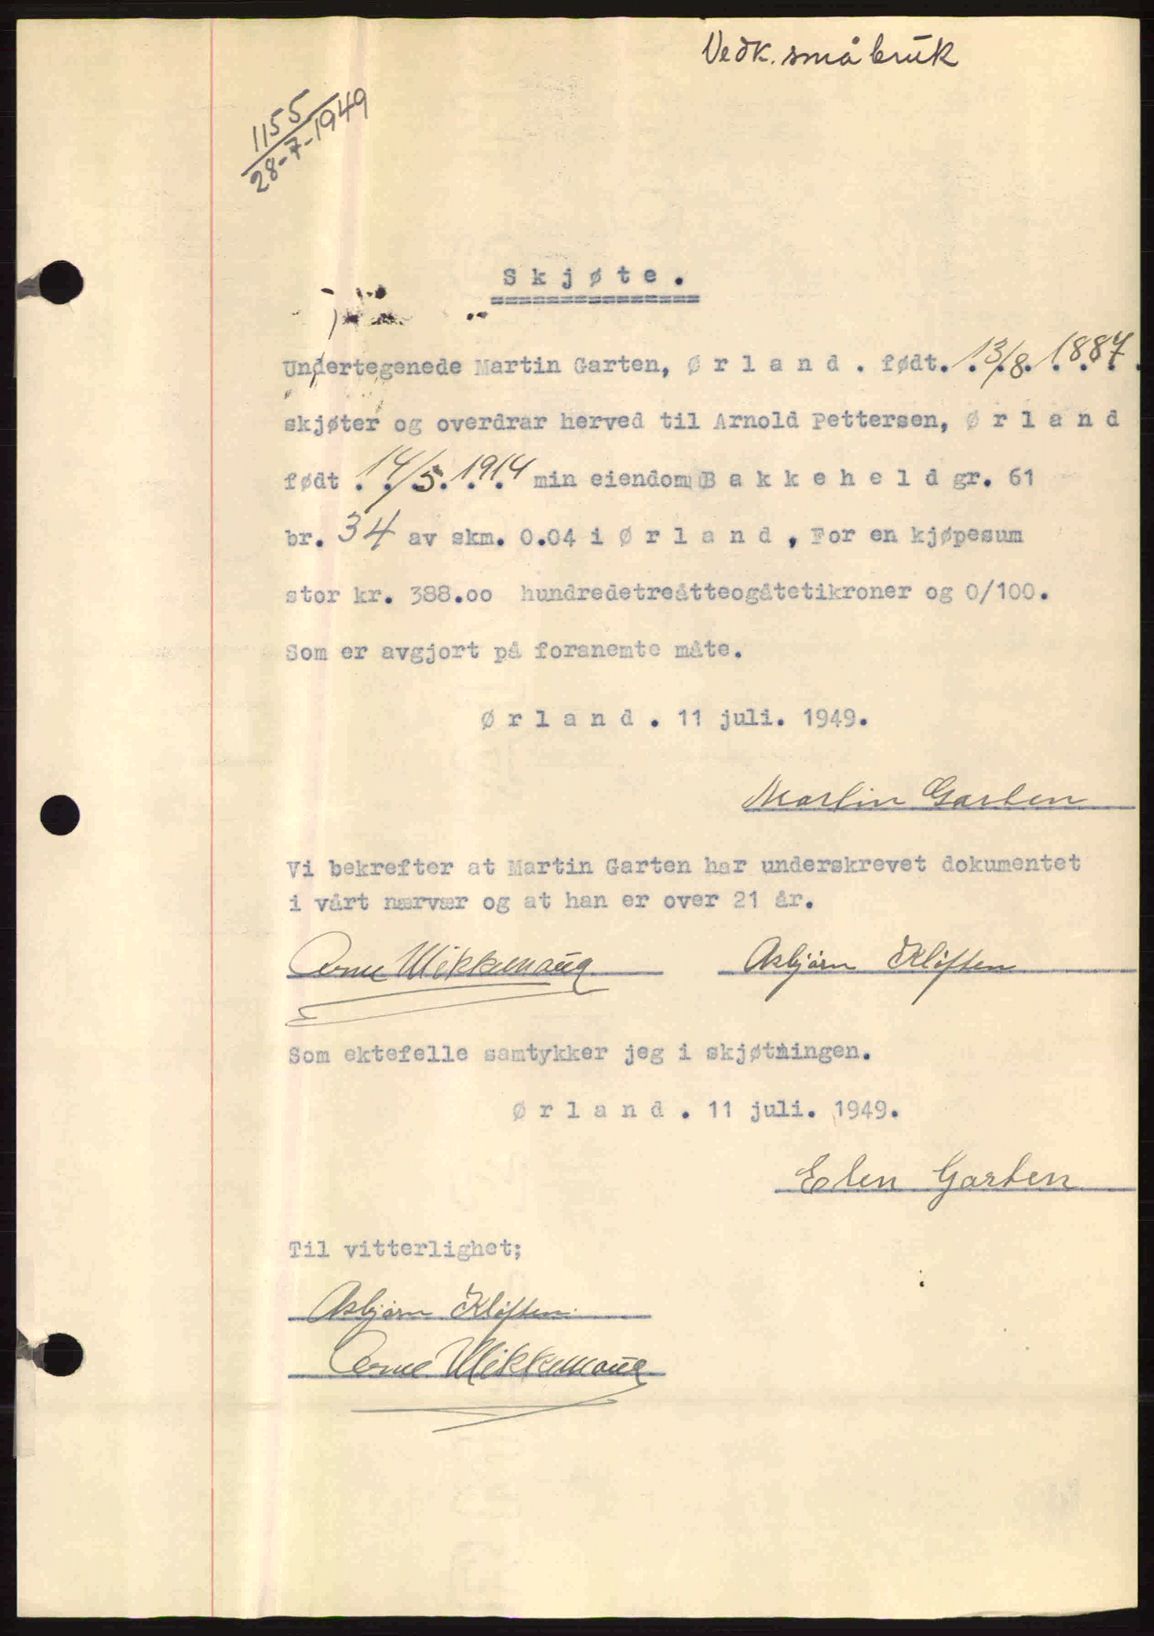 Vedk. småbruk
1155
28-7-1949
S k j ø t e .
Undertegenede Martin Garten, Ø r l a n d . født. 13/8. 1887.
skjøter og overdrar herved til Arnold Pettersen, Ø r l a n d
født 14/5. 1914 min eiendom B a k k e h e l d gr. 61
br. 34 av skm. 0.04 i Ø r l a n d , For en kjøpesum
stor kr. 388.oo hundredetreåtteogåtetikroner og 0/100.
Som er avgjort på foranemte måte.
Ø r l a n d . 11 juli. 1949.
Martin Garten
Vi bekrefter at Martin Garten har underskrevet dokumentet
i vårt nærvær og at han er over 21 år.
Arne Asbjørn Kløften
Som ektefelle samtykker jeg i skjøtningen.
Ø r l a n d . 11 juli. 1949.
Elen Garten
Til vitterlighet;
Asbjørn Kløften.
Arne